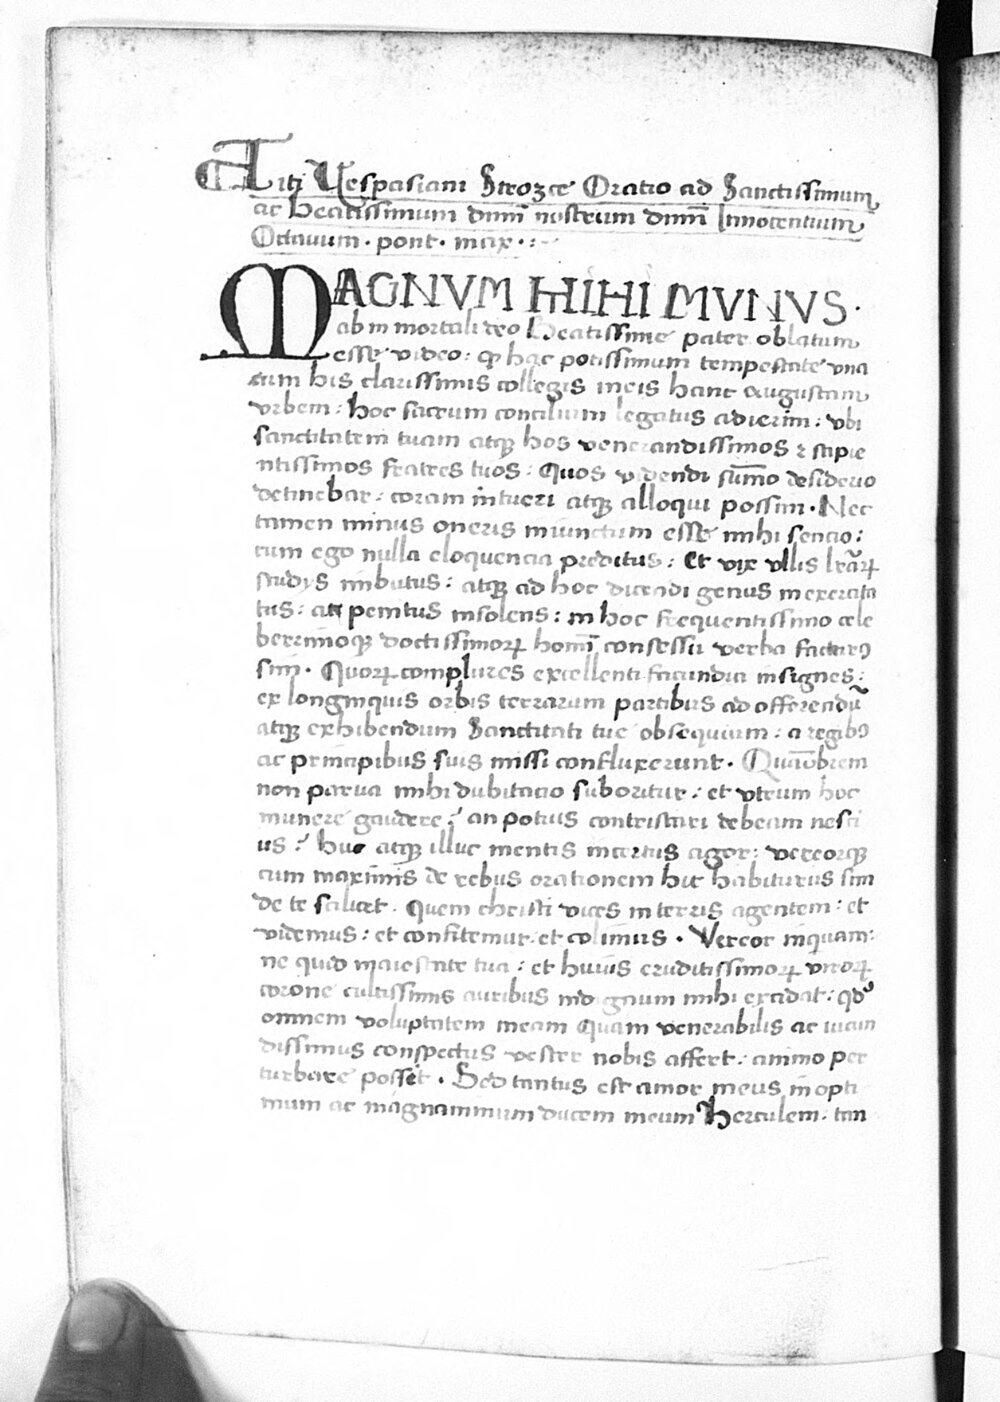 Titi Vespasiani Strozæ Oratio ad Sanctissimum
ac beatissimum dnm̄ nostrum dnm̄ Innocentium
Octauum · pont · max · :
MAGNVM MIHI MVNVS ·
ab inmortali deo Beatissime pater oblatum
esse video : ꝙ hac potissimum tempestate vna
cum his clarissimis collegis meis hanc augustam
vrbem : hoc sacrum concilium legatus adierim : vbi
sanctitatem tuam atqꝫ hos venerandissimos ⁊ sapie
ntissimos fratres tuos : Quos videndi sum̄o desiderio
detinebar : coram intueri atqꝫ alloqui possim · Nec
tamen minus oneris iniunctum esse mihi sencio :
cum ego nulla eloquencia preditus : Et vix vllis lr̄aꝝ
studijs imbutus : atqꝫ ad hoc dicendi genus inexercita
tus : at penitus insolens : in hoc frequentissimo cele
berrimoqꝫ doctissimoꝝ homī consessu verba facturꝯ
sim · Quoꝝ complures excellenti facundia insignes :
ex longinquis orbis terrarum partibus ad offerendū
atqꝫ exhibendum Sanctitati tue obsequium : a regibꝯ
ac principibus suis missi confluxerunt · Quāobrem
non parua mihi dubitacio suboritur : et vtrum hoc
munere gaudere ? an potius contristari debeam nesci
us ? huc atqꝫ illuc mentis incertus agor : vereorqꝫ
cum maximis de rebus orationem hic habiturus sim
de te scilicet · Quem christi vices in terris agentem : et
videmus : et confitemur et colimus · Vereor inquam :
ne quid maiestate tua : et huius eruditissimoꝝ viroꝝ
corone cultissimis auribus indignum mihi excidat : qd
omnem voluptatem meam Quam venerabilis ac iucun
dissimus conspectus vester nobis affert : animo per
turbare posset · Sed tantus est amor meus in opti
mum ac magnanimum ducem meum Herculem : tan